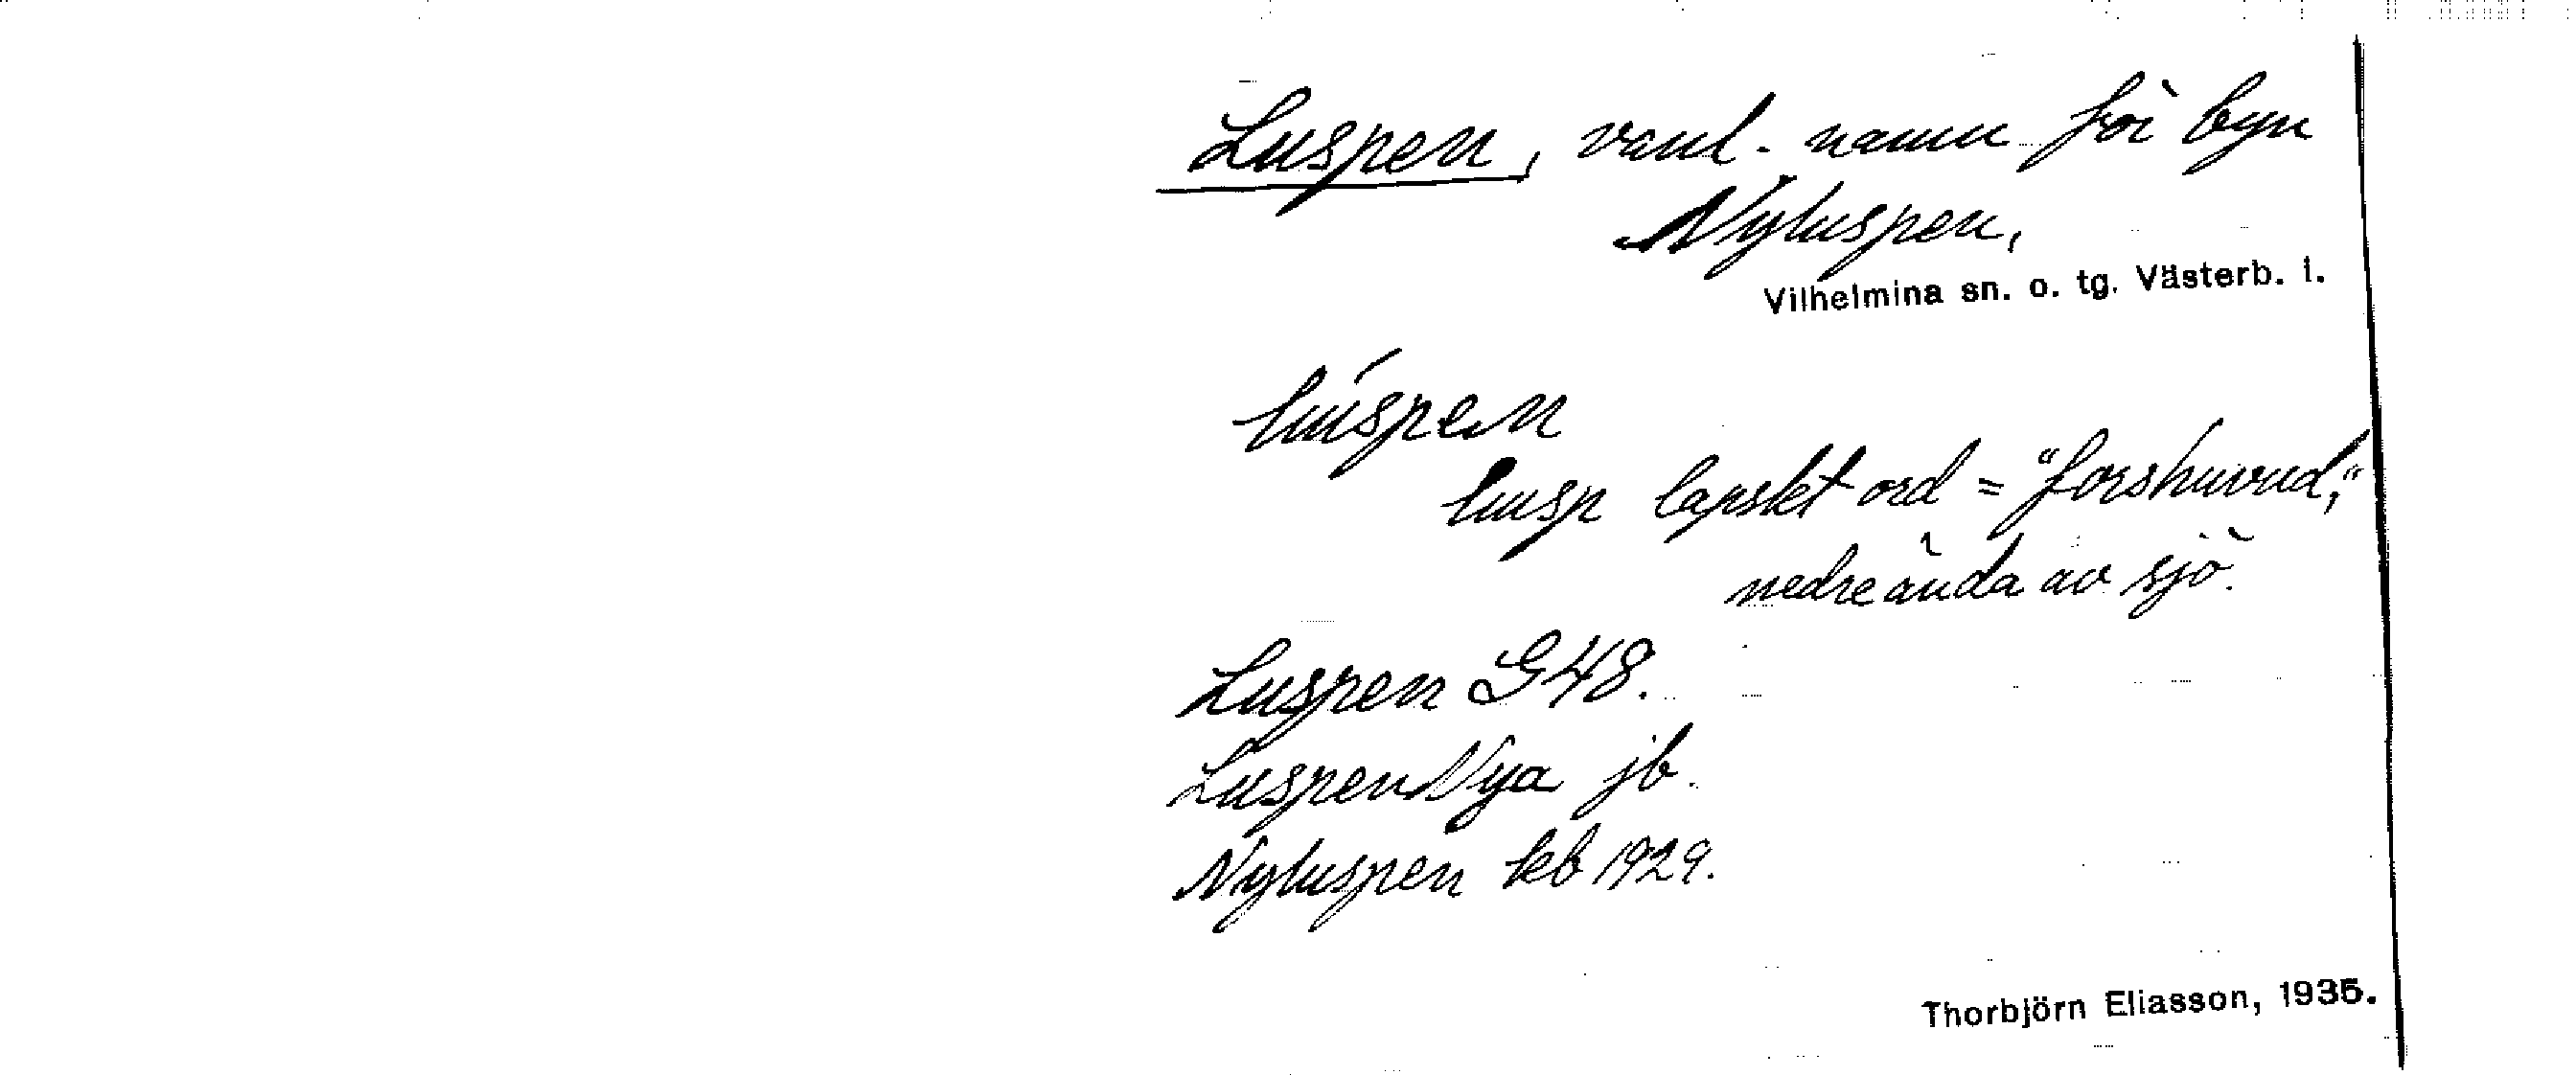 Luspen, vanl. namn för byn
Nyluspen,
Vilhelmina sn. o. tg. Västerb. l.
lúspen
lusp lapskt ord = "forshuvud,"
nedre ända av sjö.
Luspen G48.
Luspen Nya jb.
Nyluspen kb 1929.
Thorbjörn Eliasson, 1935.